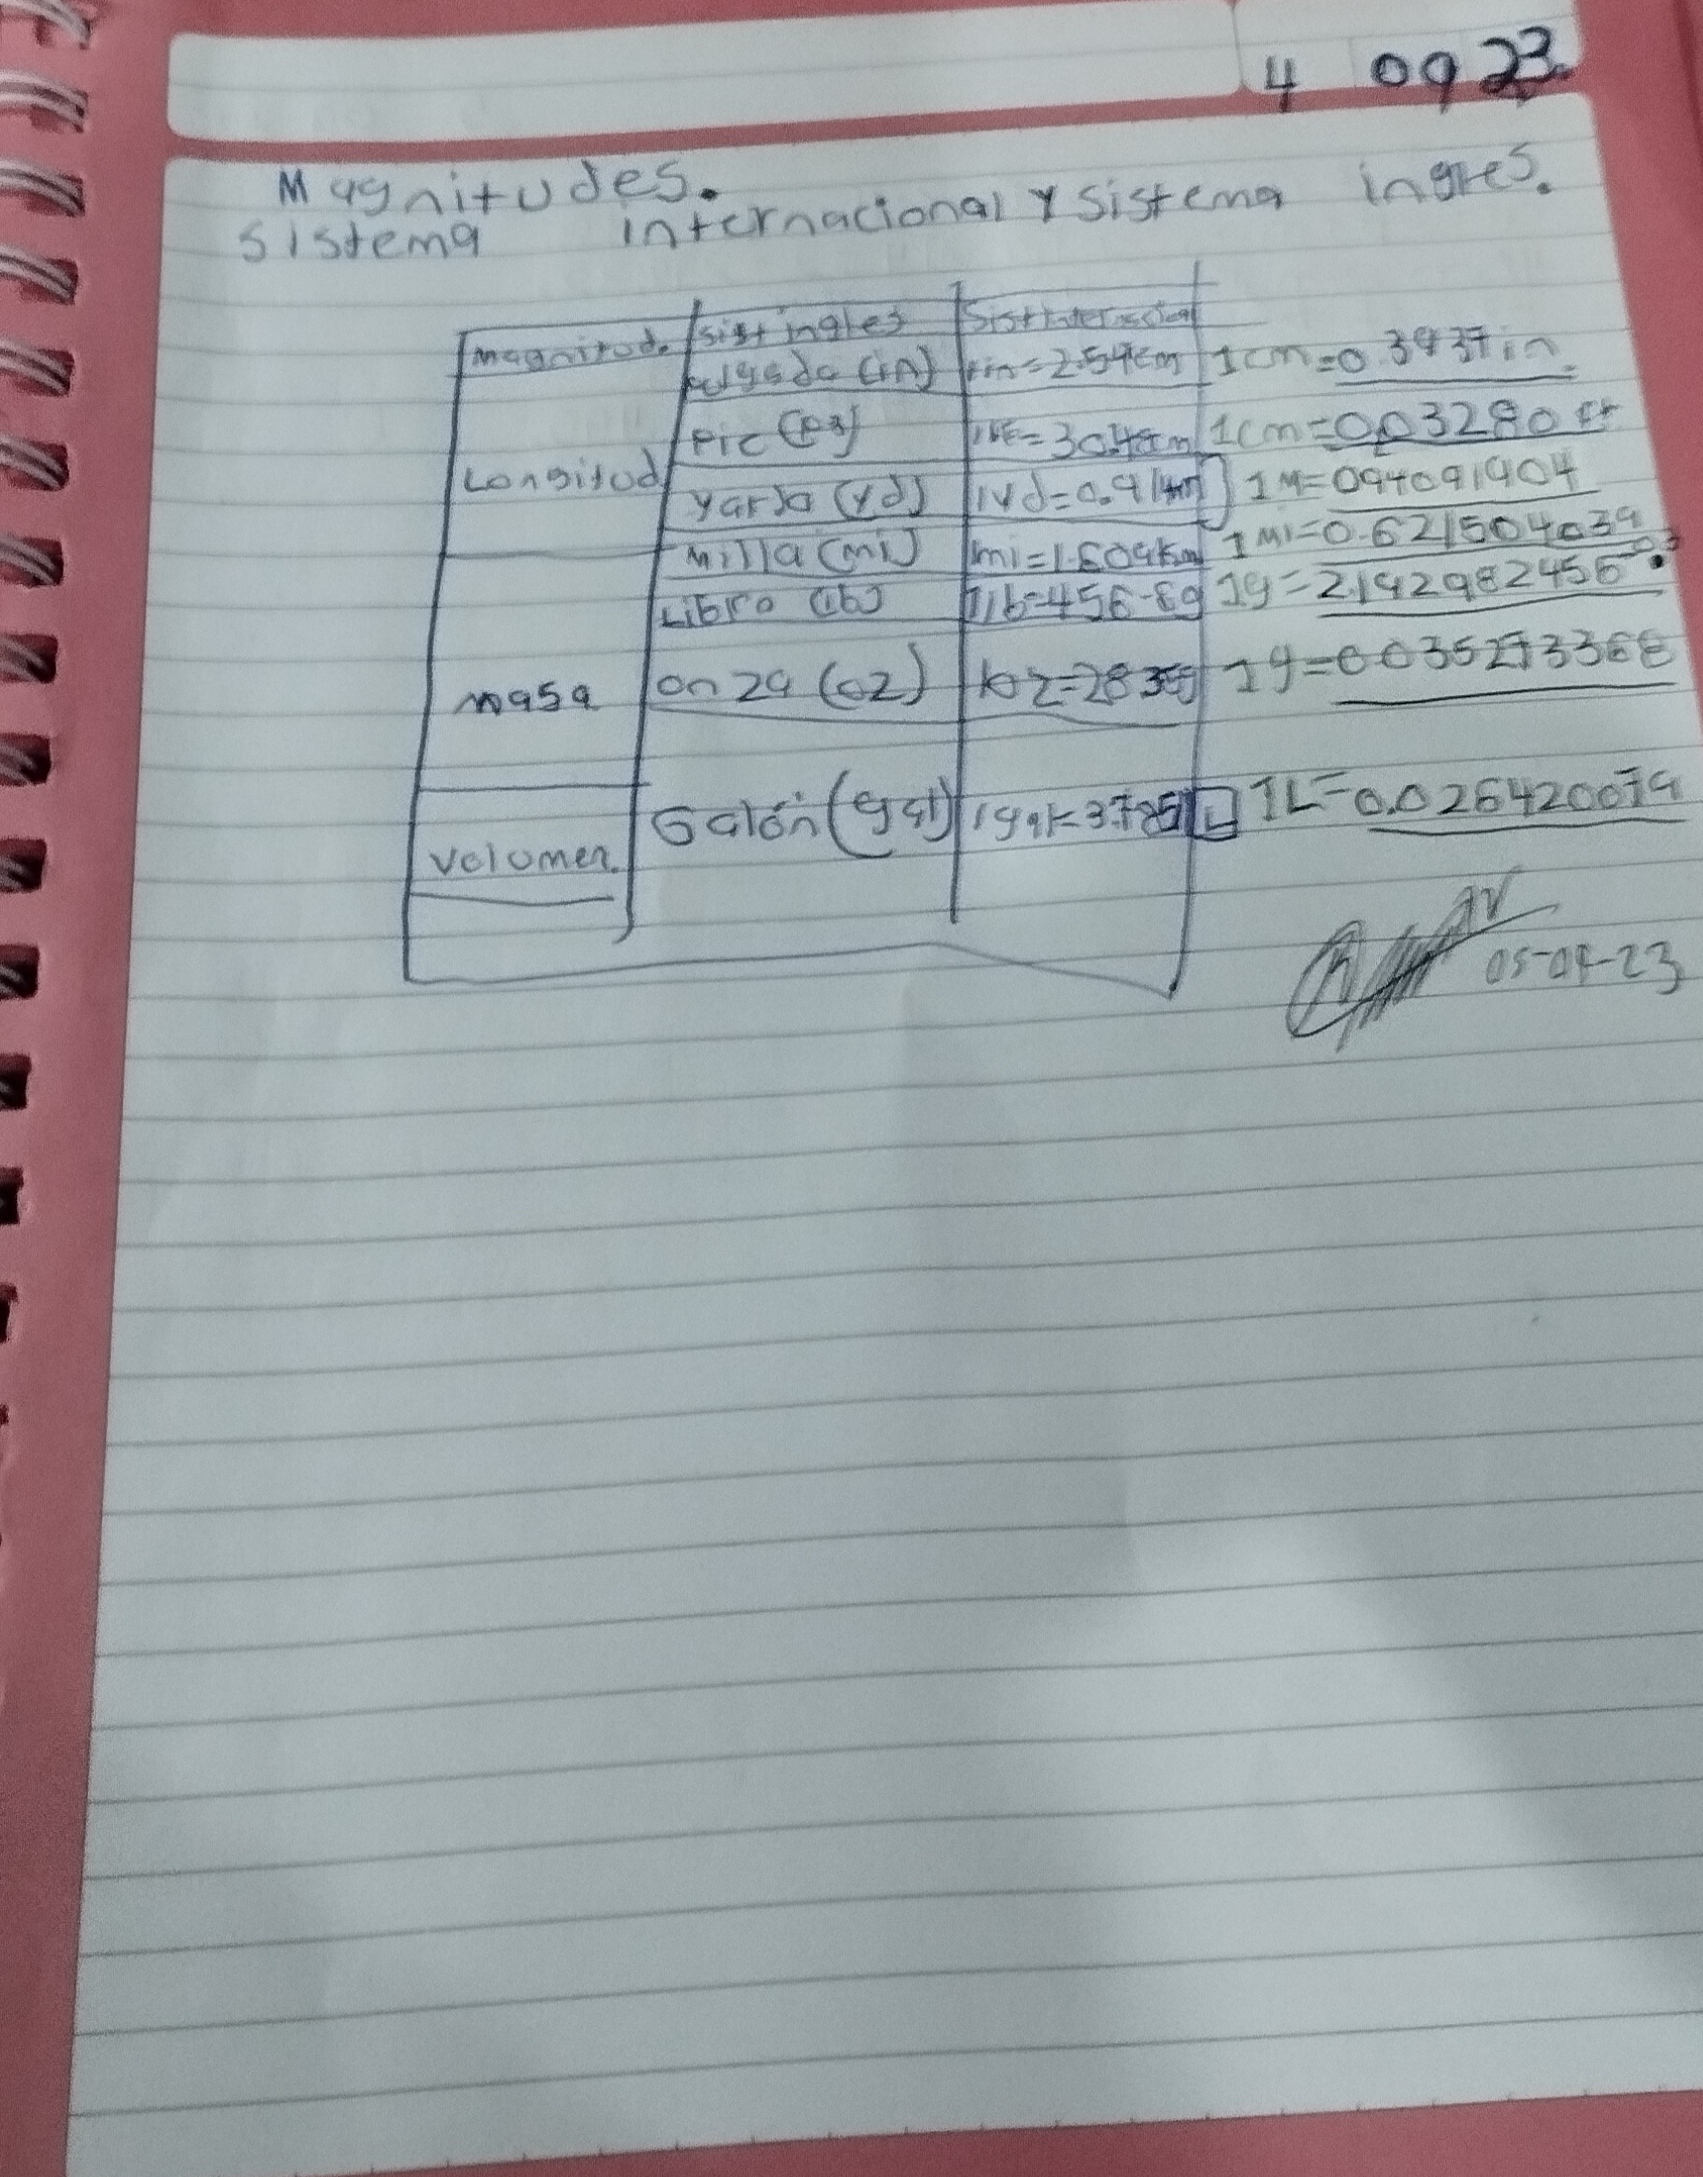 4 09 23
Magnitudes.
sistema internacional y sistema ingles.
magnitud. sist ingles Sist
(in) 1in=2.54cm 1cm=0.3937in
Longitud Pie 30.48cm 1cm=0.03280 ft
yarda (yd) 1yd=0.914m 1M=
milla (mi) 1mi=1.609km 1MI=0.621504039
(lb) 1lb=456-8g 1g=2.192982456
masa onza (oz) 1oz=28.35g 1g=0.035273368
volumen. Galón (gal) 1gal=3.785 L 1L=0.026420079
05-09-23